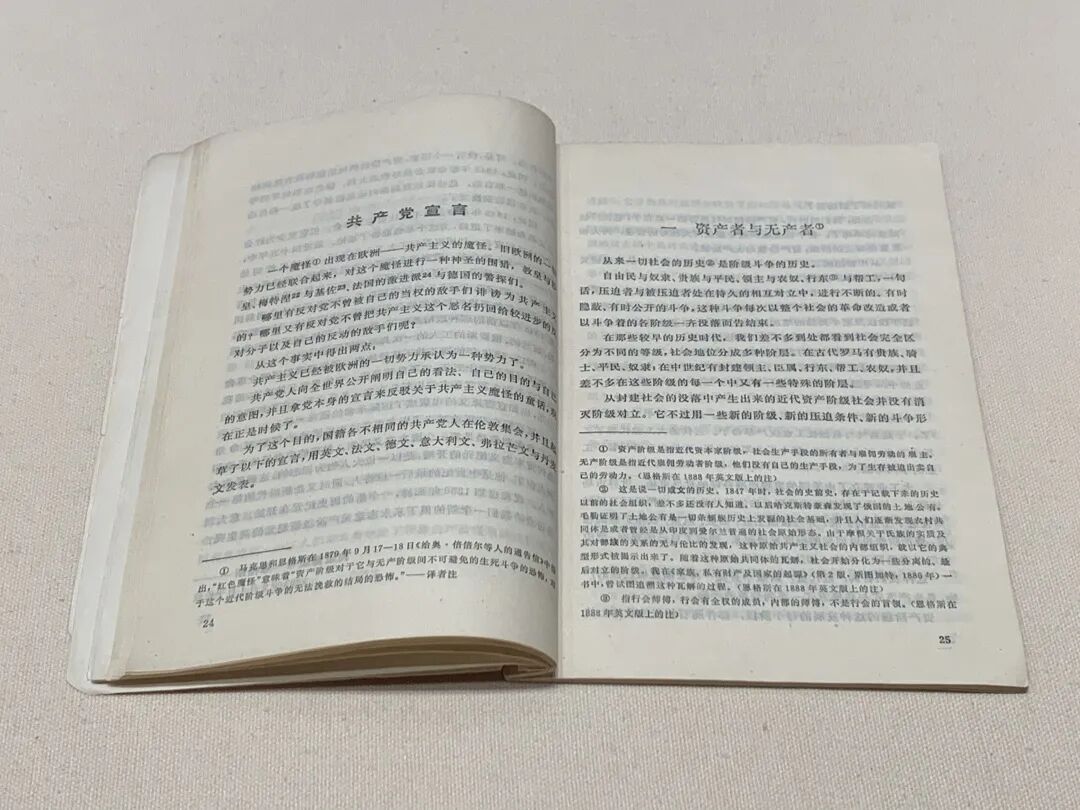 共产党宣言
一个魔怪①出现在欧洲——共产主义的魔怪。旧欧洲的一切
势力已经联合起来，对这个魔怪进行一种神圣的围猎，教皇与沙
皇、梅特涅22与基佐23、法国的激进派24与德国的警探们。
哪里有反对党不曾被自己的当权的敌手们诽谤为共产主义
的？哪里又有反对党不曾把共产主义这个恶名扔回给较进步的反
对分子以及自己的反动的敌手们呢？
从这个事实中得出两点。
共产主义已经被欧洲的一切势力承认为一种势力了。
共产党人向全世界公开阐明自己的看法、自己的目的与自己
的意图，并且拿党本身的宣言来反驳关于共产主义魔怪的童话，现
在正是时候了。
为了这个目的，国籍各不相同的共产党人在伦敦集会，并且起
草了以下的宣言，用英文、法文、德文、意大利文、弗拉芒文与丹麦
文发表。
① 马克思和恩格斯在1879年9月17—18日《给奥·倍倍尔等人的通告信》中指
出，“红色魔怪”意味着“资产阶级对于它与无产阶级间不可避免的生死斗争的恐怖，对
于这个近代阶级斗争的无法挽救的结局的恐怖。”——译者注
24
一 资产者与无产者①
从来一切社会的历史②是阶级斗争的历史。
自由民与奴隶、贵族与平民、领主与农奴、行东③与帮工，一句
话，压迫者与被压迫者处在持久的相互对立中，进行不断的、有时
隐蔽、有时公开的斗争，这种斗争每次以整个社会的革命改造或者
以斗争着的各阶级一齐没落而告结束。
在那些较早的历史时代，我们差不多到处都看到社会完全区
分为不同的等级，社会地位分成多种阶层。在古代罗马有贵族、骑
士、平民、奴隶；在中世纪有封建领主、臣属、行东、帮工、农奴，并且
差不多在这些阶级的每一个中又有一些特殊的阶层。
从封建社会的没落中产生出来的近代资产阶级社会并没有消
灭阶级对立。它不过用一些新的阶级、新的压迫条件、新的斗争形
① 资产阶级是指近代资本家阶级，社会生产手段的所有者与雇佣劳动的雇主。
无产阶级是指近代雇佣劳动者阶级，他们没有自己的生产手段，为了生存被迫出卖自
己的劳动力。（恩格斯在1888年英文版上的注）
② 这是说一切成文的历史。1847年时，社会的史前史，存在于记载下来的历史
以前的社会组织，差不多还没有人知道。以后哈克斯特豪森发现了俄国的土地公有，
毛勒证明了土地公有是一切条顿族历史上发源的社会基础，并且人们逐渐发现农村共
同体是或者曾经是从印度到爱尔兰普遍的社会原始形态。由于摩根关于氏族的实质及
其对部族的关系的无与伦比的发现，这种原始共产主义社会的内部组织，就以它的典
型形式被揭示出来了。随着这种原始共同体的瓦解，社会开始分化为一些分离的、最
后对立的阶级。我在《家族、私有财产及国家的起源》（第2版，斯图加特，1886年）一
书中，曾试图追溯这种瓦解的过程。（恩格斯在1888年英文版上的注）
③ 指行会师傅，行会有全权的成员，内部的师傅，不是行会的首领。（恩格斯在
1888年英文版上的注）
25